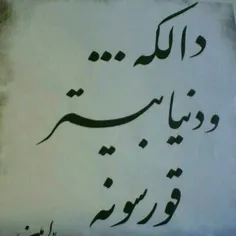 دالکه ...
و دنیا بیتر
قورسونه